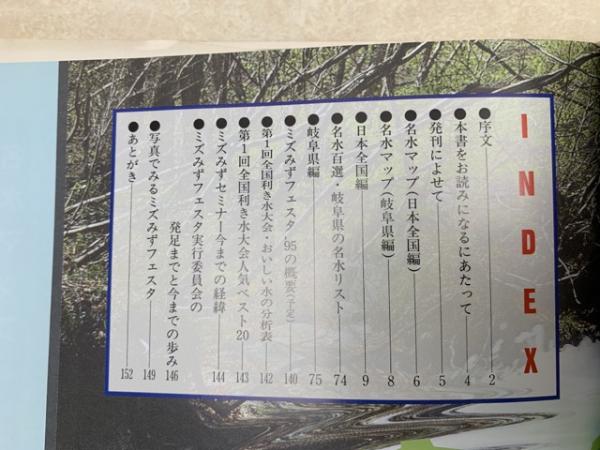 INDEX
●序文 2
●本書をお読みになるにあたって 4
●発刊によせて 5
●名水マップ(日本全国編) 6
●名水マップ(岐阜県編) 8
●日本全国編 9
●名水百選・岐阜県の名水リスト 74
●岐阜県編 75
●ミズみずフェスタ'95の概要(予定) 140
●第1回全国利き水大会・おいしい水の分析表 142
●第1回全国利き水大会人気ベスト20 143
●ミズみずセミナー今までの経緯 144
●ミズみずフェスタ実行委員会の
発足までと今までの歩み 146
●写真でみるミズみずフェスタ 149
●あとがき 152